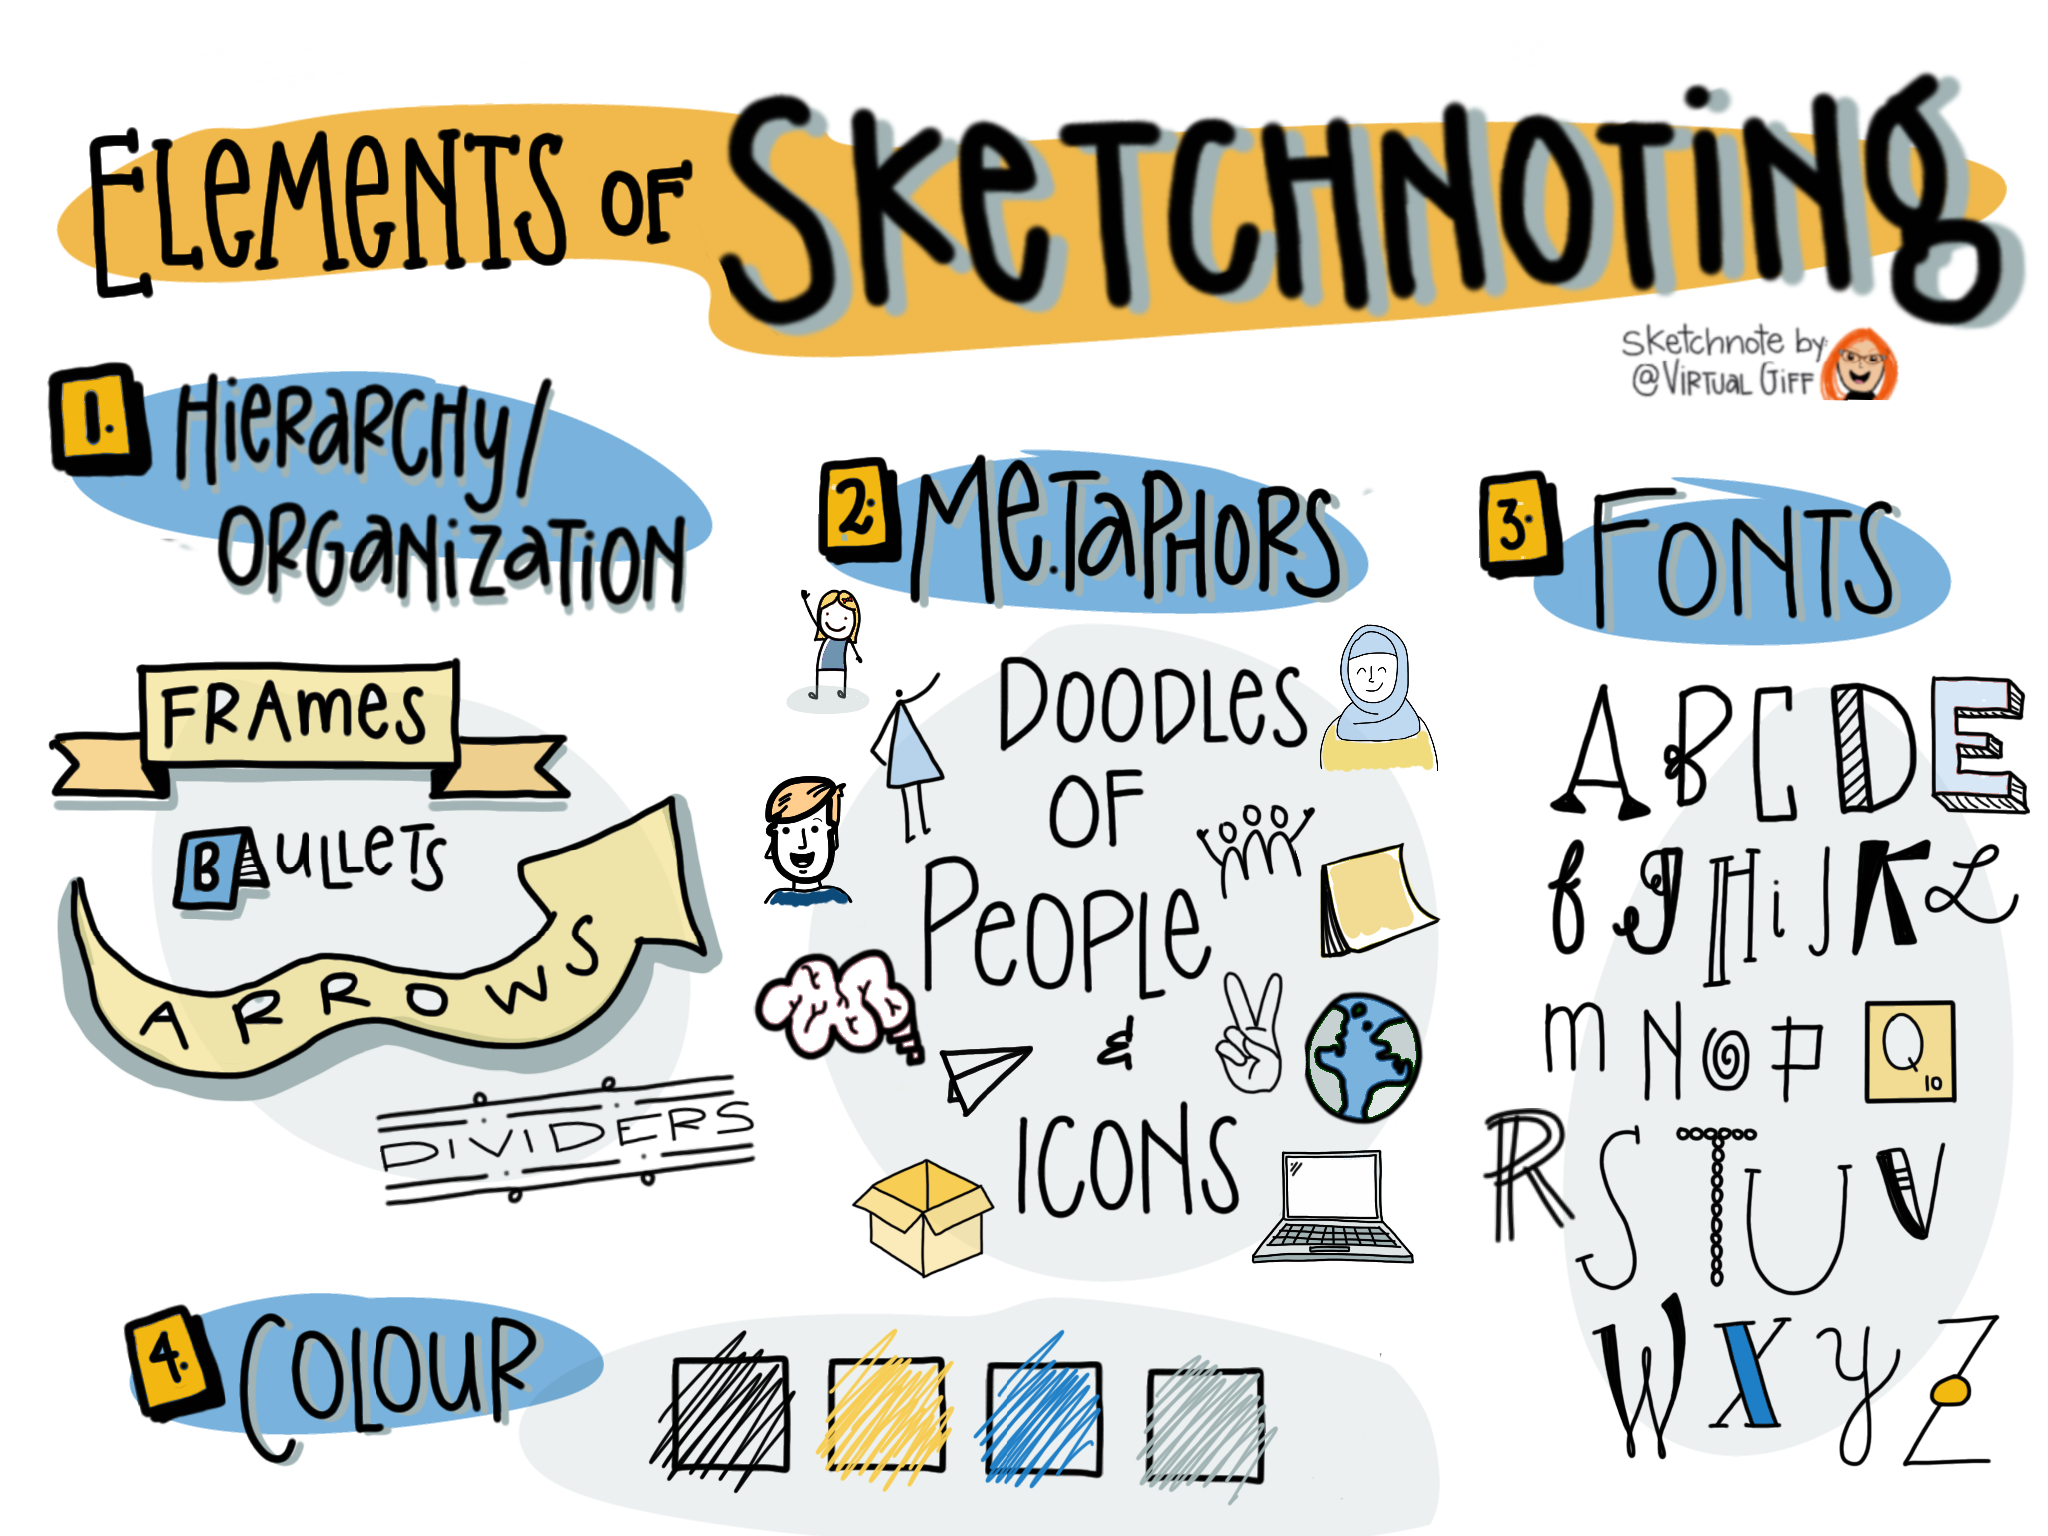 ELEMENTS OF SKETCHNOTING
Sketchnote by:
@VIRTUAL GIFF
1. HIERARCHY/
ORGANIZATION
FRAMES
BULLETS
ARROWS
DIVIDERS
2. METAPHORS
DOODLES
OF
PEOPLE
&
ICONS
3. FONTS
A B C D E
f g H i J K L
m N O P Q 10
R S T U V
W X Y Z
4. COLOUR